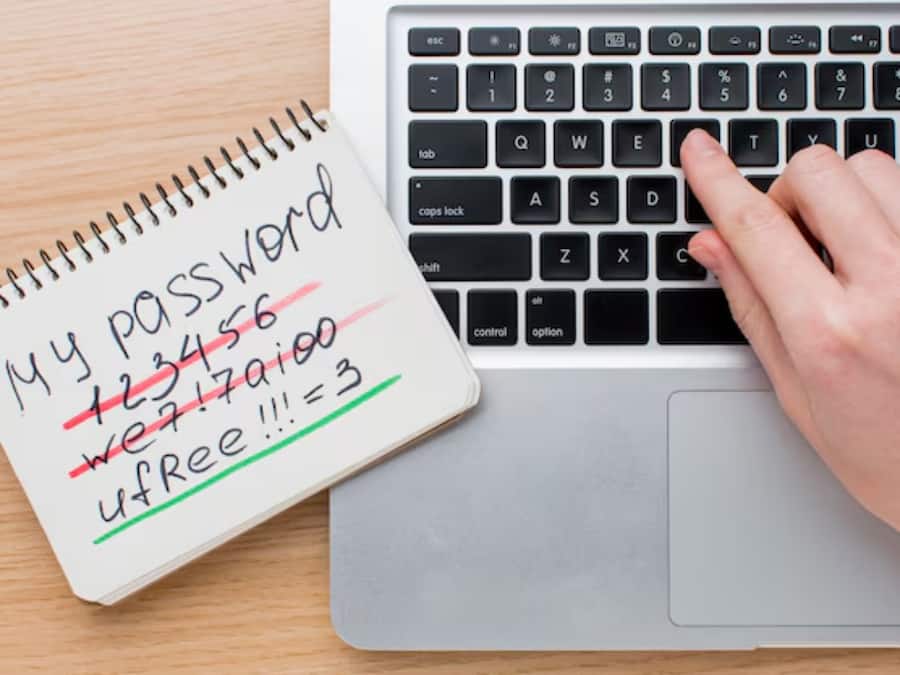 My password
123456
we7!7aioo
ufRee!!!=3
esc F1 F2 F3 F4 F5 F6 F7
~ ! 1 @ 2 # 3 $ 4 % 5 ^ 6 & 7 * 8
tab Q W E T Y U
caps lock A S D
shift Z X C
control alt option